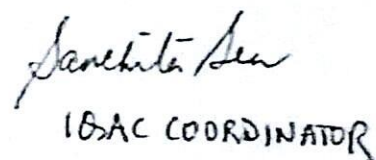 Sanchita Sen
IQAC COORDINATOR